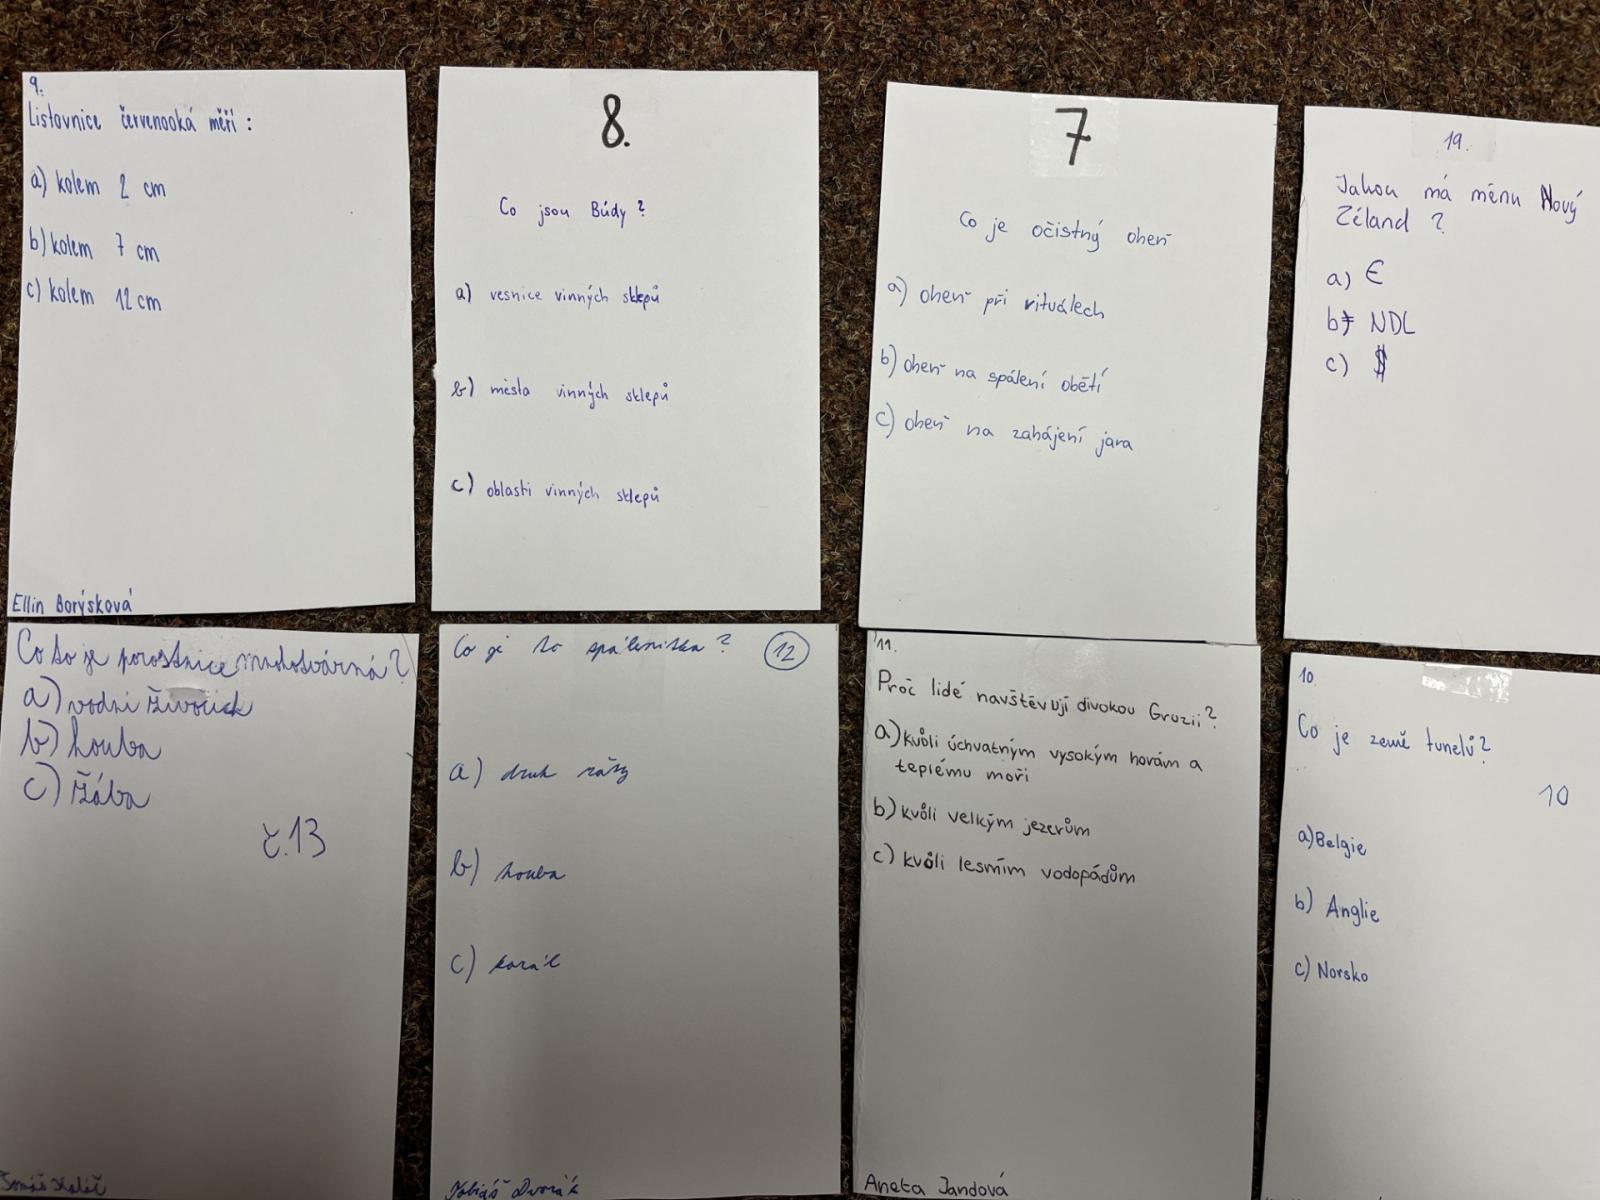 9.
Listovnice červenooká měří :
a) kolem 2 cm
b) kolem 7 cm
c) kolem 12 cm
Ellin Borýsková
8.
Co jsou Búdy ?
a) vesnice vinných sklepů
b) města vinných sklepů
c) oblasti vinných sklepů
7
Co je očistný oheň
a) oheň při rituálech
b) oheň na spálení obětí
c) oheň na zahájení jara
19.
Jakou má měnu Nový
Zéland ?
a) €
b) NDL
c) $
Co to je porostnice mnohotvárná?
a) vodní živočich
b) houba
c) žába
č.13
Co je to spálenitka ? 12
a) druh řásy
b) houba
c) korál
Tobiáš Dvořák
11.
Proč lidé navštěvují divokou Gruzii?
a) kvůli úchvatným vysokým horám a
teplému moři
b) kvůli velkým jezerům
c) kvůli lesmím vodopádům
Aneta Jandová
10.
Co je země tunelů?
10
a) Belgie
b) Anglie
c) Norsko